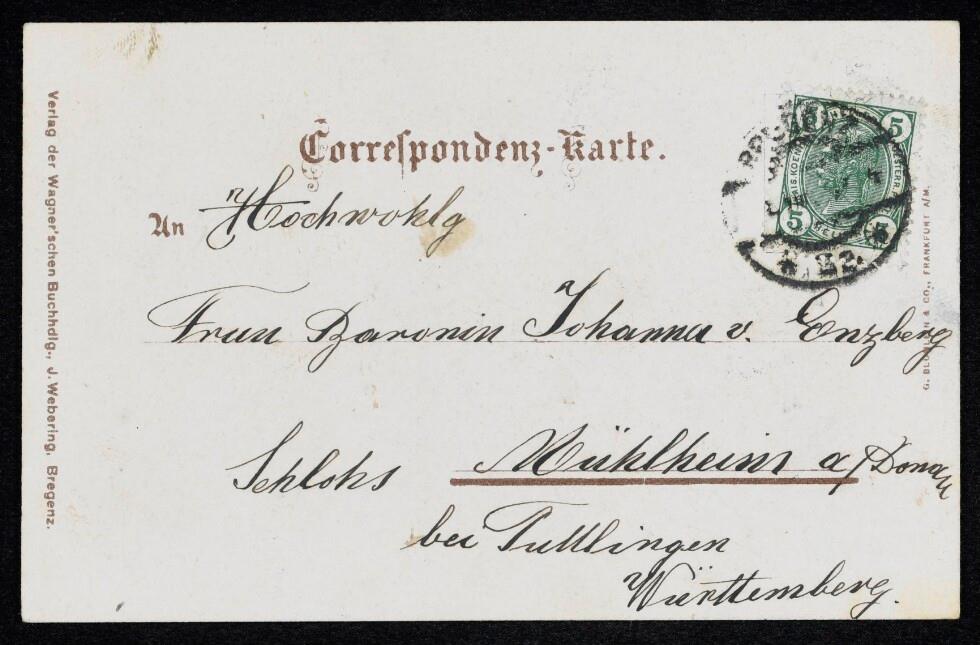 Correspondenz-Karte.
An Hochwohlg
Frau Baronin Johanna v. Enzberg
Schloss Mühlheim a/Donau
bei Tuttlingen
Württemberg.
Verlag der Wagner'schen Buchhdlg., J. Webering, Bregenz.
& CO., FRANKFURT A/M.
5 5
5 5